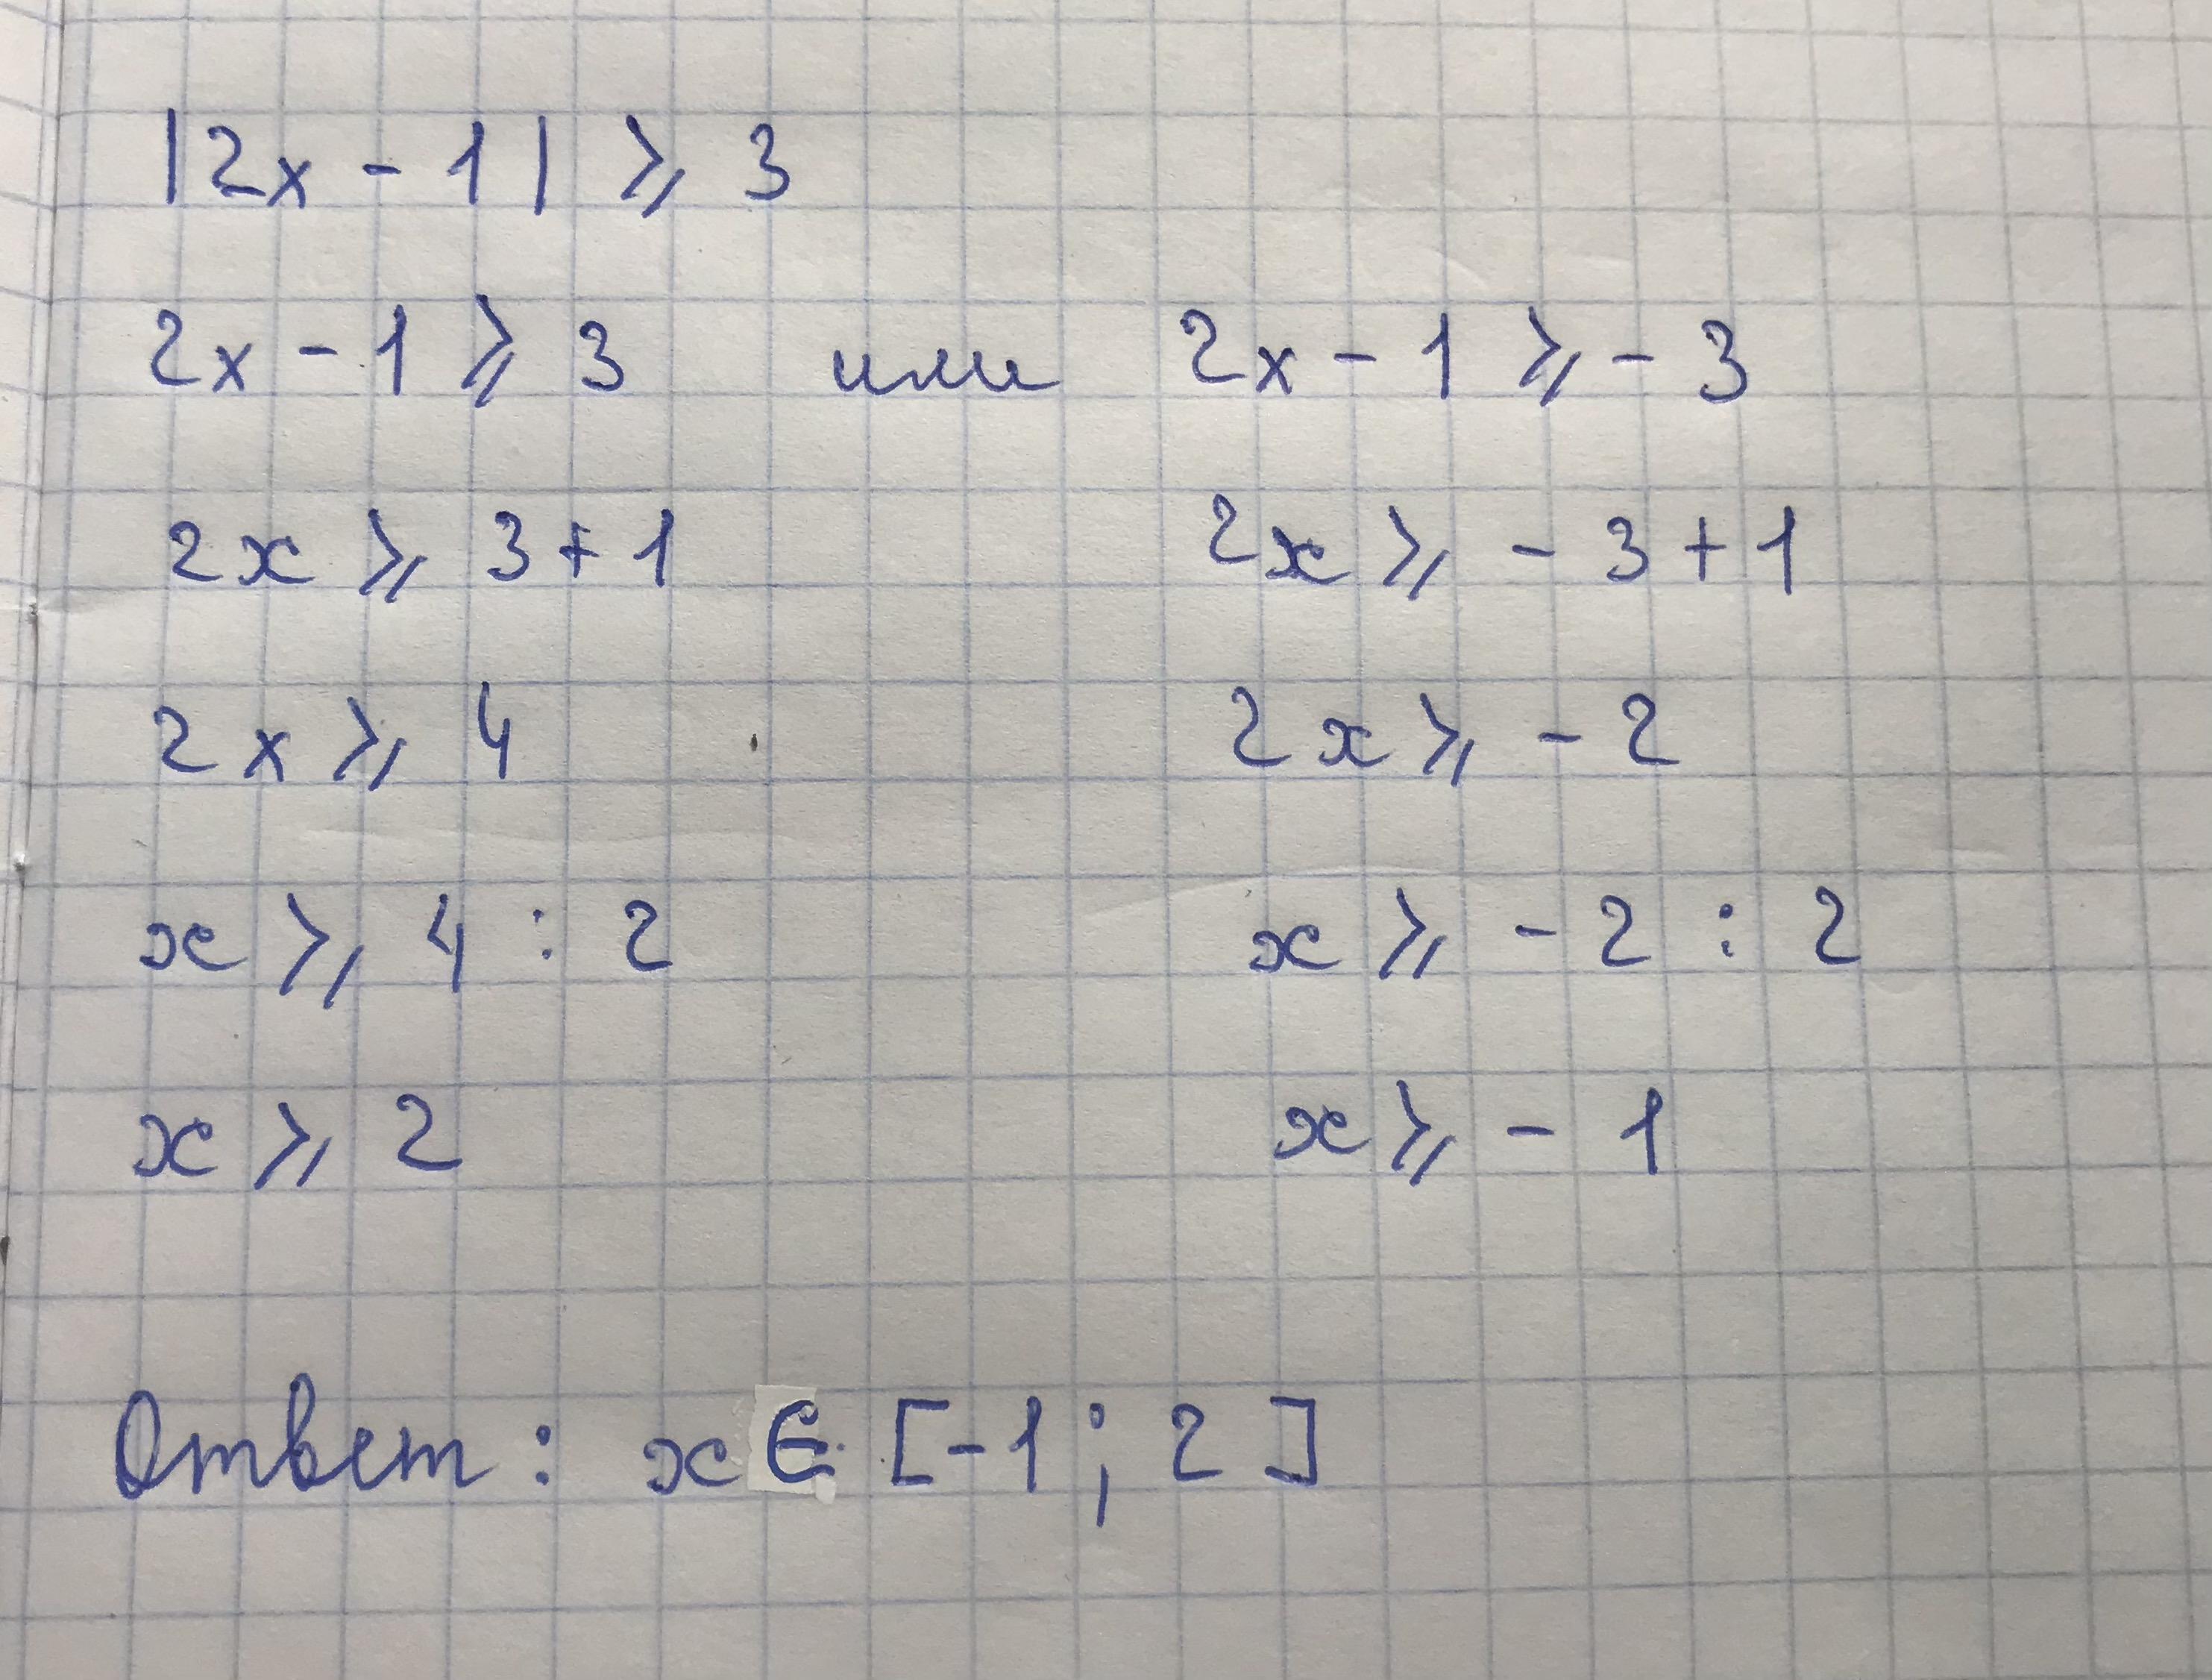 |2x - 1| ⩾ 3
2x - 1 ⩾ 3 или 2x - 1 ⩾ - 3
2x ⩾ 3 + 1 2x ⩾ - 3 + 1
2x ⩾ 4 2x ⩾ - 2
x ⩾ 4 : 2 x ⩾ - 2 : 2
x ⩾ 2 x ⩾ - 1
Ответ: x ∈ [-1 ; 2]